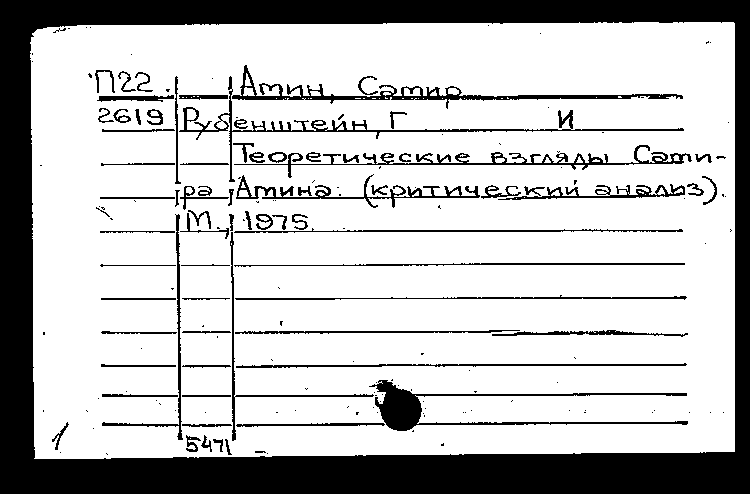 П22. Амин, Самир
2619 Рубенштейн, Г И
Теоретические взгляды Сами-
ра Амина. (критический анализ).
М., 1975.
1
5471